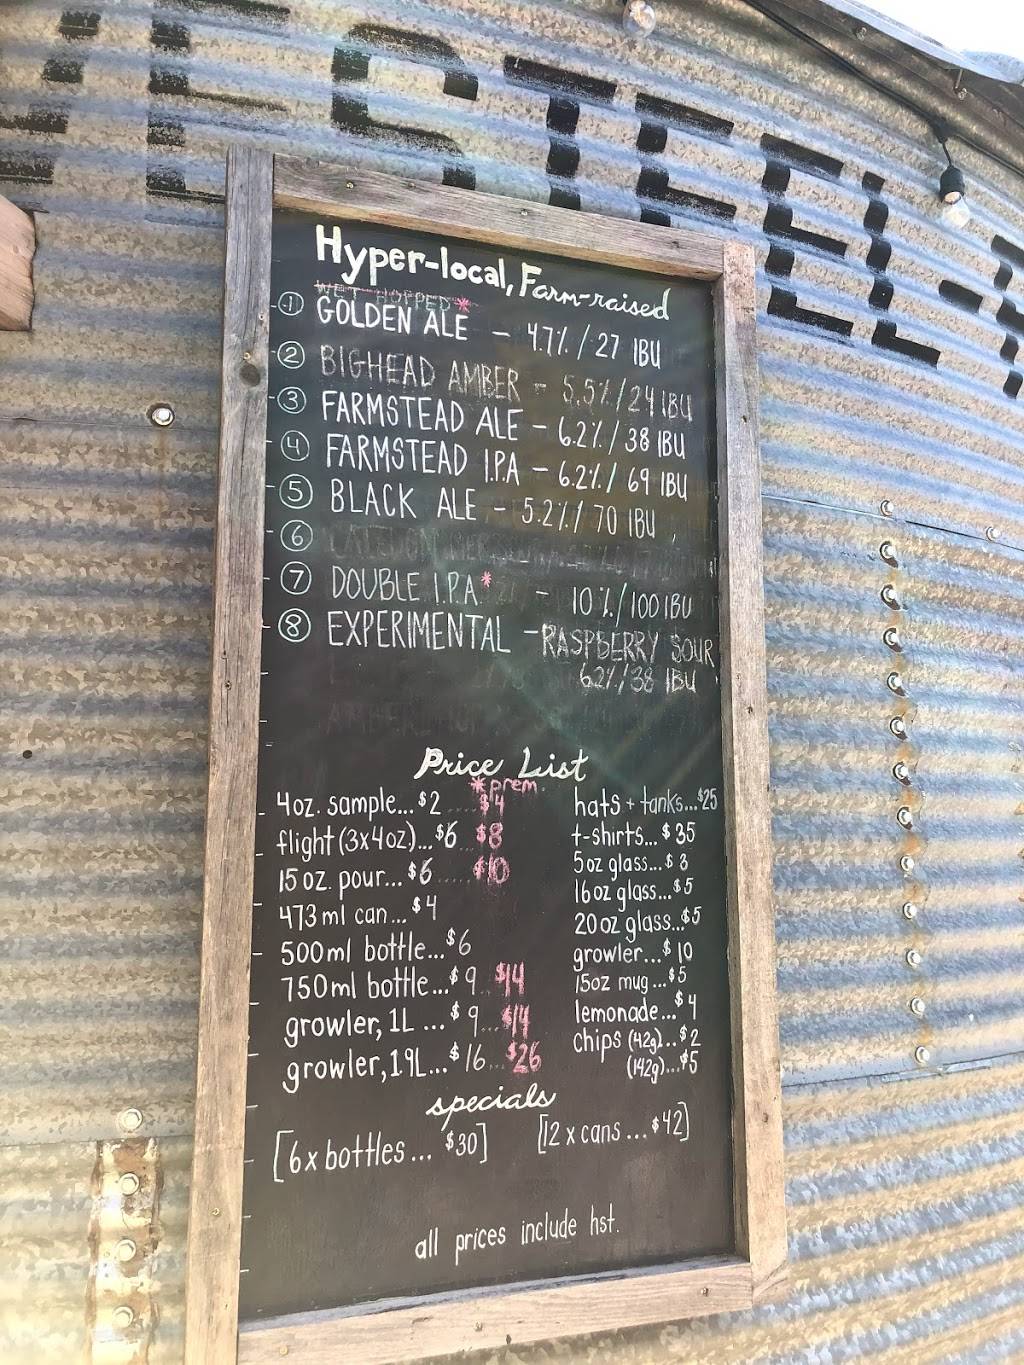 WESTEEL-
Hyper-local, Farm-raised
WET HOPPED*
① GOLDEN ALE - 4.7% / 27 IBU
② BIGHEAD AMBER - 5.5% / 24 IBU
③ FARMSTEAD ALE - 6.2% / 38 IBU
④ FARMSTEAD I.P.A - 6.2% / 69 IBU
⑤ BLACK ALE - 5.2% / 70 IBU
⑥
⑦ DOUBLE I.P.A* - 10% / 100 IBU
⑧ EXPERIMENTAL - RASPBERRY SOUR
6.2% / 38 IBU
Price List
*prem.
4oz. sample...$2.....$4
flight (3x4oz)...$6...$8
15oz. pour...$6.....$10
473ml can...$4
500ml bottle...$6
750ml bottle...$9...$14
growler, 1L...$9...$14
growler, 1.9L...$16...$26
hats + tanks...$25
t-shirts...$35
5oz glass...$3
16oz glass...$5
20oz glass...$5
growler...$10
15oz mug...$5
lemonade...$4
chips (42g)...$2
(142g)...$5
specials
[6 x bottles... $30]
[12 x cans...$42]
all prices include hst.